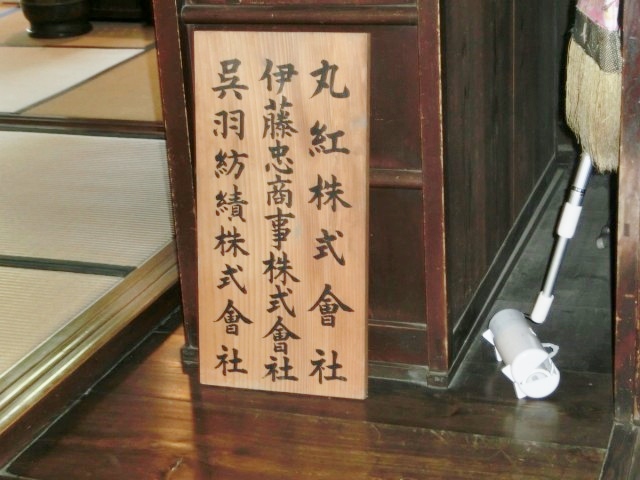 丸紅株式會社
伊藤忠商事株式會社
呉羽紡績株式會社